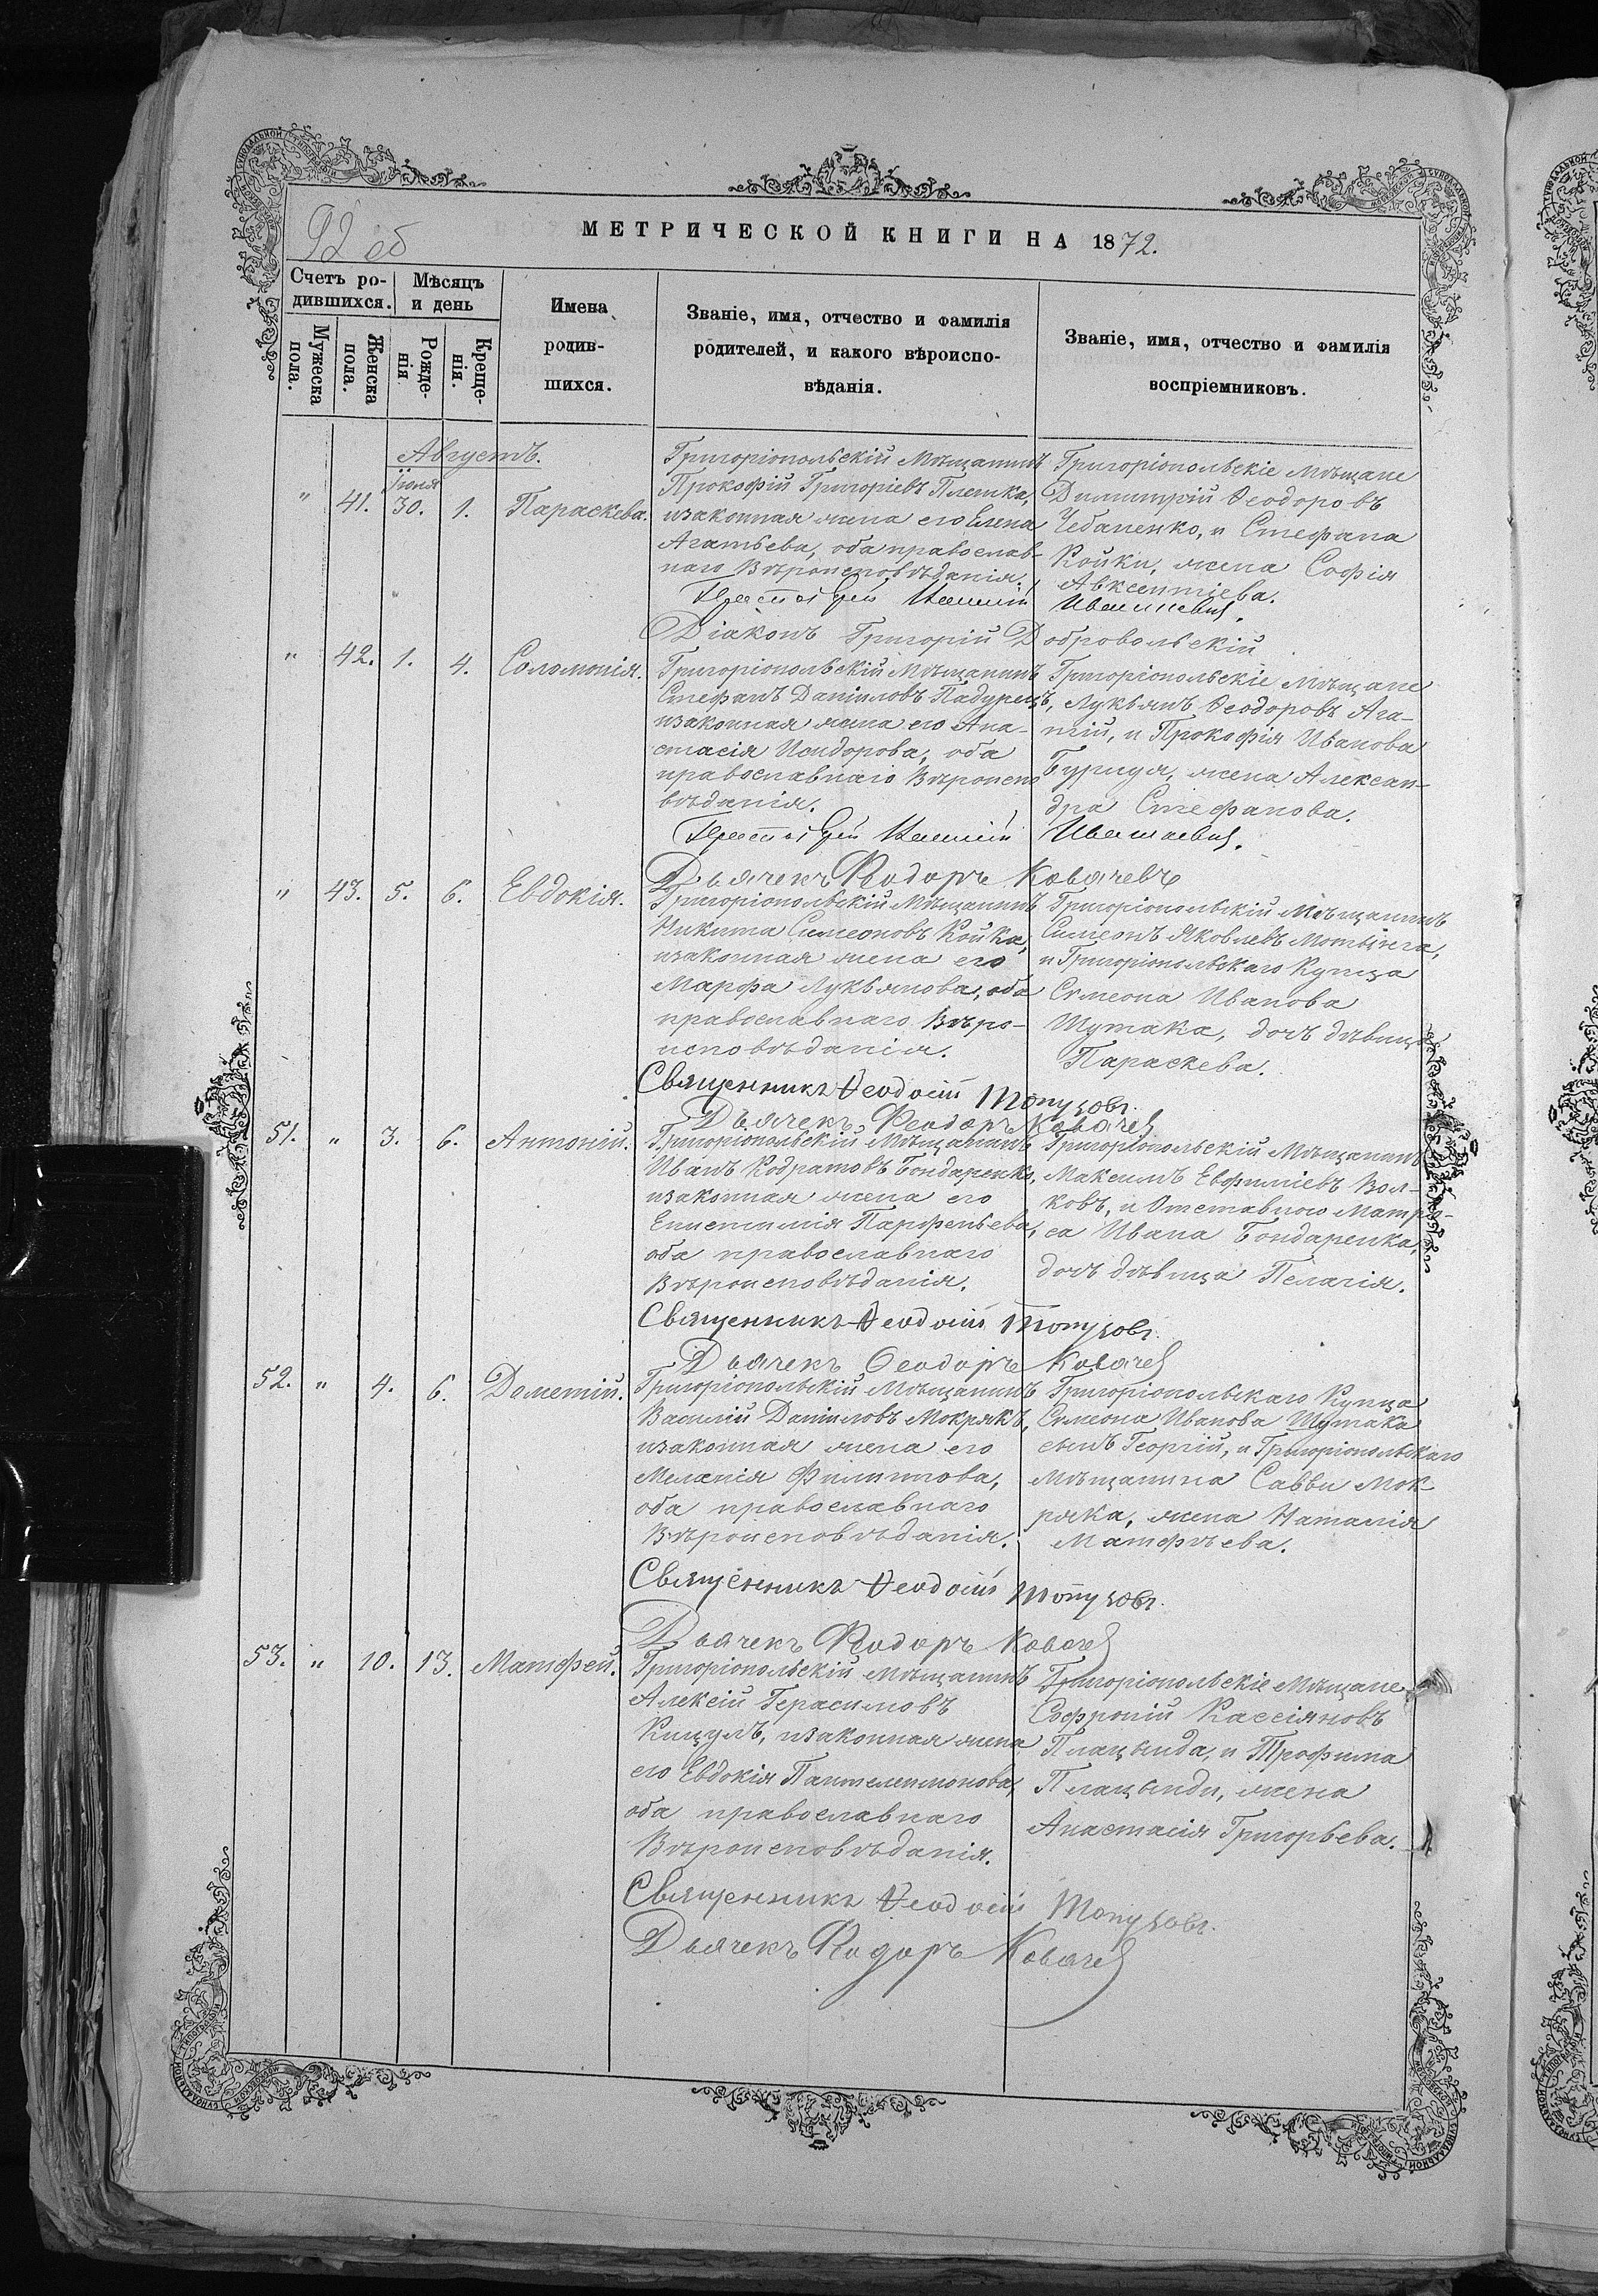 92 об
МЕТРИЧЕСКОЙ КНИГИ НА 1872.
Счетъ ро-
дившихся.
Мѣсяцъ
и день
Мужеска
пола.
Женска
пола.
Рожде-
нія
Креще-
нія.
Имена
родив-
шихся.
Званіе, имя, отчество и фамилія
родителей, и какого вѣроиспо-
вѣданія.
Званіе, имя, отчество и фамилія
воспріемниковъ.
Августъ.
" 41. Іюля 30. 1. Параскева.
Григоріопольскій Мѣщанинъ
Прокофій Григоріевъ Плешка,
изаконная жена его Елена
Агатьева, оба православ-
наго Вѣроисповѣданія.
Григоріопольскіе мѣщане
Димитрій Ѳеодоровъ
Чебаненко, и Стефана
Койки, жена Софія
Авксентіева.
Діаконъ Григорій Добровольскій
" 42. 1. 4. Соломонія.
Григоріопольскій Мѣщанинъ
Стефанъ Даніиловъ Падурецъ,
изаконная жена его Ана-
стасія Исидорова, оба
православнаго Вѣроиспо
вѣданія.
Григоріопольскіе мѣщане
Лукьянъ Ѳеодоровъ Ага-
пій, и Прокофія Иванова
Бурдуя, жена Алексан-
дра Стефанова.
Дьячекъ Ѳеодоръ Ковачевъ
" 43. 5. 6. Евдокія.
Григоріопольскій Мѣщанинъ
Никита Симеоновъ Койка,
изаконная жена его
Марфа Лукьянова, оба
православнаго Вѣро-
исповѣданія.
Григоріопольскій Мѣщанинъ
Симеонъ Яковлевъ Мотынга,
и Григоріопольскаго Купца
Симеона Иванова
Шутака, дочь дѣвица
Параскева.
Священникъ Ѳеодосій Топузовъ.
Дьячекъ Ѳеодоръ Ковачев
51. " 3. 6. Антоній.
Григоріопольскій Мѣщанинъ
Иванъ Кодратовъ Бондаренко,
изаконная жена его
Епистимія Парфеньева,
оба православнаго
Вѣроисповѣданія.
Григоріопольскій Мѣщанинъ
Максимъ Евфиміевъ Вол-
ковъ, и Отставного Матро-
са Ивана Бондаренка,
дочь дѣвица Пелагія.
Священникъ Ѳеодосій Топузовъ.
Дьячекъ Ѳеодоръ Ковачев
52. " 4. 6. Дометій.
Григоріопольскій Мѣщанинъ
Василій Даніиловъ Мокрякъ,
изаконная жена его
Меланія Филиппова,
оба православнаго
Вѣроисповѣданія.
Григоріопольскаго Купца
Симеона Иванова Шутака
сынъ Георгій, и Григоріопольскаго
Мѣщанина Саввы Мок-
ряка, жена Наталія
Матфѣева.
Священникъ Ѳеодосій Топузовъ.
Дьячекъ Ѳеодоръ Ковачев
53. " 10. 13. Матфей.
Григоріопольскій Мѣщанинъ
Алексій Герасимовъ
Кицулъ, изаконная жена
его Евдокія Пантелеимонова,
оба православнаго
Вѣроисповѣданія.
Григоріопольскіе Мѣщане
Софроній Кассіяновъ
Плацында, и Трофима
Плацынды, жена
Анастасія Григорьева.
Священникъ Ѳеодосій Топузовъ.
Дьячекъ Ѳеодоръ Ковачев